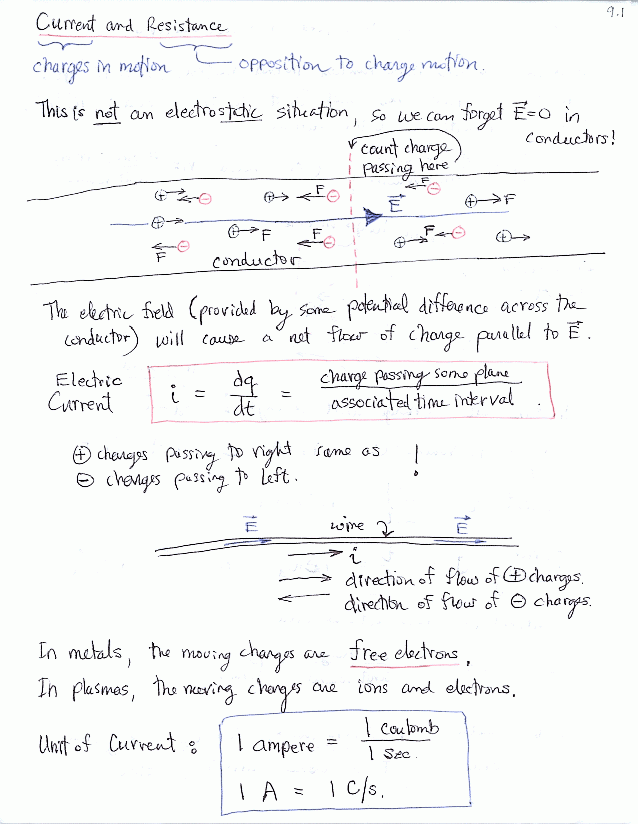 9.1
Current and Resistance
charges in motion opposition to charge motion.
This is not an electrostatic situation, so we can forget E⃗=0 in
conductors!
count charge
passing here
⊕→ ←⊖ ⊕→ ←F ⊖ E⃗ ←F ⊖ ⊕→F
⊕→
←F ⊖ ⊕→F ←F ⊖ ⊕→ F← ⊖ ⊕→
conductor
The electric field (provided by some potential difference across the
conductor) will cause a net flow of charge parallel to E⃗.
Electric Current i = dq/dt = charge passing some plane / associated time interval.
⊕ charges passing to right same as !
⊖ charges passing to left.
E⃗ wire E⃗
→ i
→ direction of flow of ⊕ charges.
← direction of flow of ⊖ charges.
In metals, the moving charges are free electrons.
In plasmas, the moving charges are ions and electrons.
Unit of Current : 1 ampere = 1 coulomb / 1 sec.
1 A = 1 C/s.